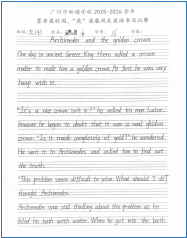 广州市新穗学校 2025-2026 学年
墨香溢校园，“英”姿展风采英语书写比赛
班级: 姓名: 学号: 16
Archimedes and the golden crown
One day in ancient Greece, King Hiero asked a crown
maker to make him a golden crown. At first, he was very
happy with it.
"It's a nice crown, isn't it?" he asked his men. Later,
however, he began to doubt that it was a real golden
crown. "Is it made completely of gold?" he wondered.
He sent it to Archimedes and asked him to find out
the truth.
"This problem seems difficult to solve. What should I do?"
thought Archimedes.
Archimedes was still thinking about this problem as he
filled his bath with water. When he got into the bath,